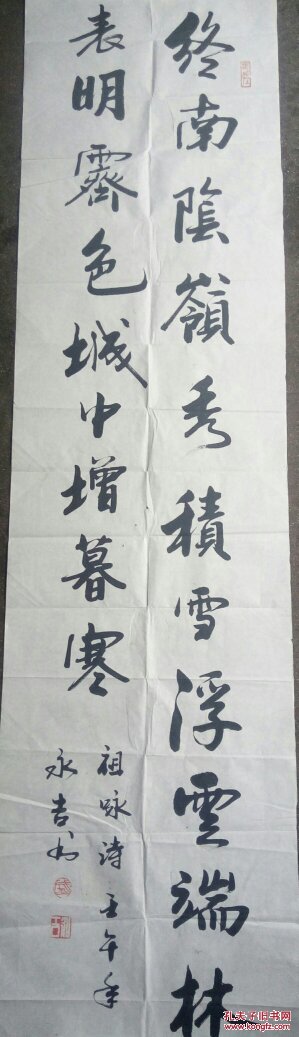 終南陰嶺秀積雪浮雲端林
表明霽色城中增暮寒
祖咏詩壬午年
永吉书
孔夫子旧书网
www.kongfz.com